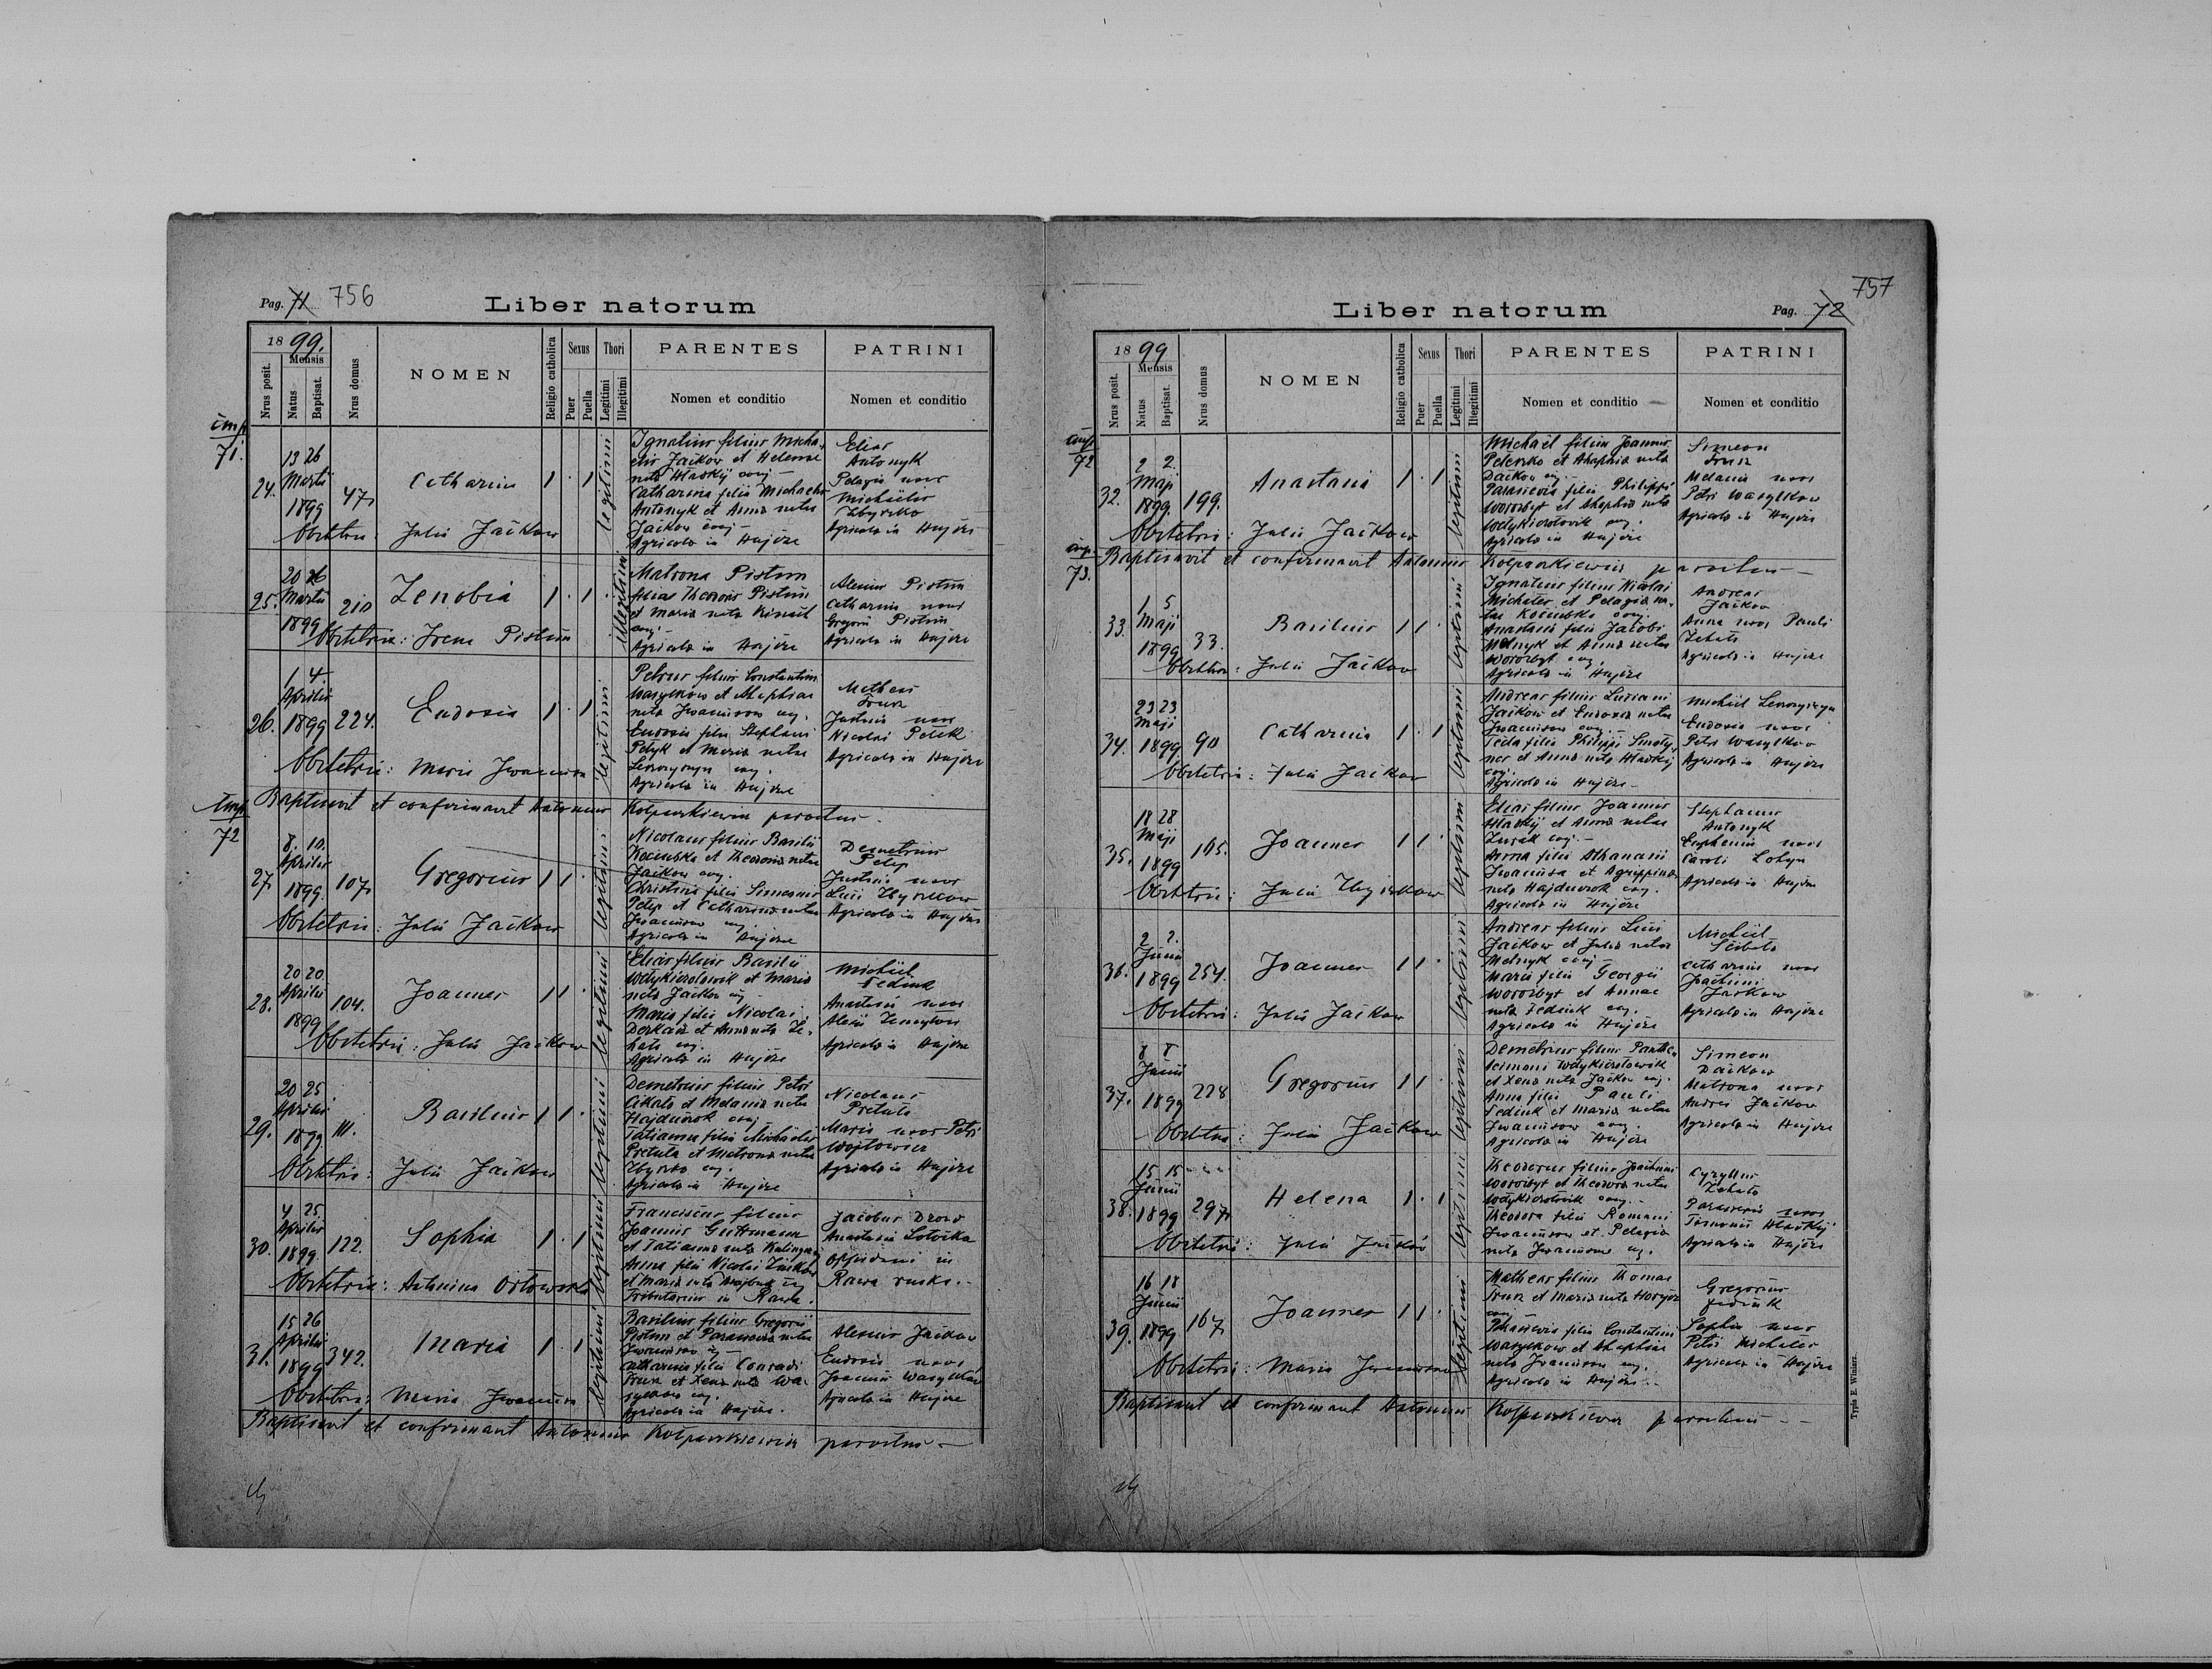 Pag. 71 756
Liber natorum
1899.
Mensis
Nrus posit.
Natus
Baptisat.
Nrus domus
NOMEN
Religio catholica
Sexus
Puer
Puella
Thori
Legitimi
Illegitimi
PARENTES
Nomen et conditio
PATRINI
Nomen et conditio
imp
71.
24.
13 26
Martii
1899
47
Catharina
1 . 1
legitimi
Ignatius filius Micha-
elis Jaćkow et Helenae
nata Hładkij conj -
Catharina filia Michaelis
Antonyk et Anna natae
Jaćkow conj -
Agricola in Hujcze
Elias
Antonyk
Pelagia uxor
Michaelis
Zbyszko
Agricola in Hujcze
Obstetrix: Julia Jaćkow
25.
20 26
Martii
1899
210
Zenobia
1 . 1
illegitimi
Matrona Pistun
filia Theodori Pistun
et Maria nata
conj -
Agricola in Hujcze
Alexius Pistun
Catharina uxor
Gregorii Pistun
Agricola in Hujcze
Obstetrix: Irena Pistun
26.
1 4
Aprilis
1899
224.
Eudoxia
1 . 1
legitimi
Petrus filius Constantini
Wasylkow et Ahaphiae
nata Iwanisow conj.
Eudoxia filia Stephani
Petyk et Maria natae
conj.
Agricola in Hujcze
Matheus
Trusz
Justina uxor
Nicolai Petek
Agricola in Hujcze
Obstetrix: Maria Iwanisow
Baptisavit et confirmavit Antonius Kolpaczkiewicz parochus -
imp
72
27
8. 10.
Aprilis
1899
107
Gregorius
1 1 .
legitimi
Nicolaus filius Basilii
et Theodora natae
Jaćkow conj.
Christina filia Simeonis
Pelip et Catharina natae
Iwanisow conj.
Agricola in Hujcze
Demetrius
Pelip
Justina uxor
Agricola in Hujcze
Obstetrix: Julia Jaćkow
28.
20 20
Aprilis
1899
104.
Joannes
1 1 .
legitimi
Elias filius Basilii
et Maria
nata Jaćkow conj -
Maria filia Nicolai
Derkacz et Anna nata Ze-
hato conj.
Agricola in Hujcze
Michael
Fediuk
Anastasia uxor
Alexii
Agricola in Hujcze
Obstetrix: Julia Jaćkow
29.
20 25
Aprilis
1899
111.
Basilius
1 1 .
legitimi
Demetrius filius Petri
et Melania natae
Hajduczok conj
Tatianna filia Michaelis
Pretula et Matrona natae
Zbyszko conj.
Agricola in Hujcze
Nicolaus
Pretula
Maria uxor Petri
Wojtowicz
Agricola in Hujcze
Obstetrix: Julia Jaćkow
30.
4 25
Aprilis
1899
122.
Sophia
1 . 1
legitimi
Franciscus filius
Joannis Guttmann
et Tatianna nata
Anna filia Nicolai
et Maria nata
Tributarius in Rawa.
Jacobus Drozd
Anastasia
Oppidani in
Rawa ruska. -
Obstetrix: Antonina Orłowska
31.
15 26
Aprilis
1899
342.
Maria
1 . 1
legitimi
Basilius filius Gregorii
Pistun et Parascevia natae
Iwanisow conj -
Catharina filia Conradi
Trusz et Xena nata Wa-
sylkow conj.
Agricola in Hujcze.
Alexius Jaćkow
Eudoxia uxor
Joannis Wasylkow
Agricola in Hujcze
Obstetrix: Maria Iwanisow
Baptisavit et confirmavit Antonius Kolpaczkiewicz parochus -
757
Liber natorum
Pag. 72
1899
Mensis
Nrus posit.
Natus
Baptisat.
Nrus domus
NOMEN
Religio catholica
Sexus
Puer
Puella
Thori
Legitimi
Illegitimi
PARENTES
Nomen et conditio
PATRINI
Nomen et conditio
imp
72
32.
2 2.
Maji
1899.
199.
Anastasia
1 . 1
legitimi
Michael filius Joannis
et Ahaphia nata
Daćkow conj. -
Parascevia filia Philippi
Worozbyt et Ahaphia nata
conj.
Agricola in Hujcze
Simeon
Trusz
Melania uxor
Petri Wasylkow
Agricola in Hujcze
Obstetrix: Julia Jaćkow
Baptisavit et confirmavit Antonius Kolpaczkiewicz parochus -
imp
73.
33.
1 5
Maji
1899
33.
Basilius
1 1 .
legitimi
Ignatius filius Nicolai
Michalec et Pelagia na-
tae conj.
Anastasia filia Jacobi
Melnyk et Anna natae
Worozbyt conj.
Agricola in Hujcze
Andreas
Jaćkow
Anna uxor Pauli
Zehato
Agricola in Hujcze
Obstetrix: Julia Jaćkow
34.
23 23
Maji
1899
90
Catharina
1 . 1
legitimi
Andreas filius Luciani
Jaćkow et Eudoxia natae
Iwanisow conj. -
Tecla filia Philippi
et Anna nata Hładkij
conj.
Agricola in Hujcze -
Michael
Eudoxia uxor
Petri Wasylkow
Agricola in Hujcze
Obstetrix: Julia Jaćkow
35.
18 28
Maji
1899
165.
Joannes
1 1 .
legitimi
Elias filius Joannis
Hładkij et Anna natae
Zurak conj. -
Anna filia Athanasii
Iwanisa et Agrippina
nata Hajduczok conj.
Agricola in Hujcze
Stephanus
Antonyk
Euphemia uxor
Caroli
Agricola in Hujcze
Obstetrix: Julia
36.
2 2.
Junii
1899
254.
Joannes
1 1 .
legitimi
Andreas filius Luciae
Jaćkow et Julia natae
Melnyk conj -
Maria filia Georgii
Worozbyt et Annae
nata Fediuk conj.
Agricola in Hujcze
Michael
Catharina uxor
Joachimi
Jaćkow
Agricola in Hujcze
Obstetrix: Julia Jaćkow
37.
8 8
Junii
1899
228
Gregorius
1 1 .
legitimi
Demetrius filius Pante-
leimoni
et Xena nata Jaćkow conj.
Anna filia Pauli
Fediuk et Maria natae
Iwanisow conj.
Agricola in Hujcze
Simeon
Daćkow
Matrona uxor
Andrei Jaćkow
Agricola in Hujcze
Obstetrix: Julia Jaćkow
38.
15 15
Junii
1899
297
Helena
1 . 1
legitimi
Theodorus filius Joachimi
Worozbyt et Theodora natae
conj. -
Theodora filia Romani
Iwanisow et Pelagia
nata Iwanisow conj.
Cyryllus
Zehato
Parascevia uxor
Hładkij
Agricola in Hujcze
Obstetrix: Julia Jaćkow
39.
16 18
Junii
1899
167
Joannes
1 1 .
legitimi
Matheus filius Thomae
Trusz et Maria nata
conj -
Parascevia filia Constantini
Wasylkow et Ahaphiae
nata Iwanisow conj.
Agricola in Hujcze -
Gregorius
Fediuk
Sophia uxor
Petri Michalec
Agricola in Hujcze
Obstetrix: Maria Iwanisow
Baptisavit et confirmavit Antonius Kolpaczkiewicz parochus - -
Typis E. Winiarz.